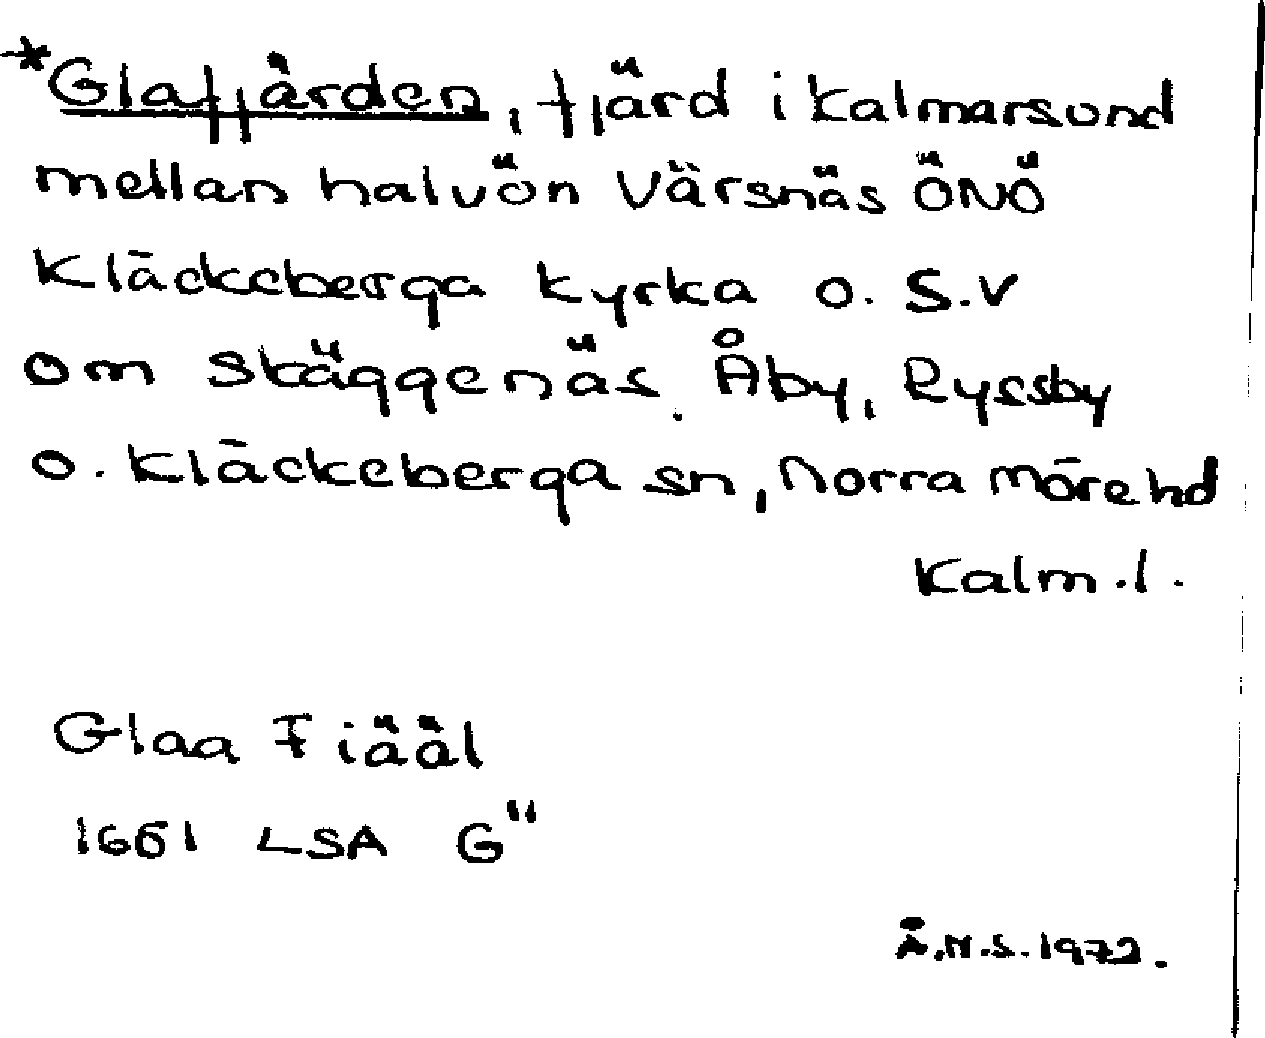 *Glafjärden, fjärd i Kalmarsund
mellan halvön Värsnäs ÖNÖ
Kläckeberga kyrka o. S.V
om Skäggenäs. Åby, Ryssby
o. Kläckeberga sn, Norra Möre hd
Kalm.l.
Glaa Fiääl
1651 LSA G"
Å.N.S. 1972.